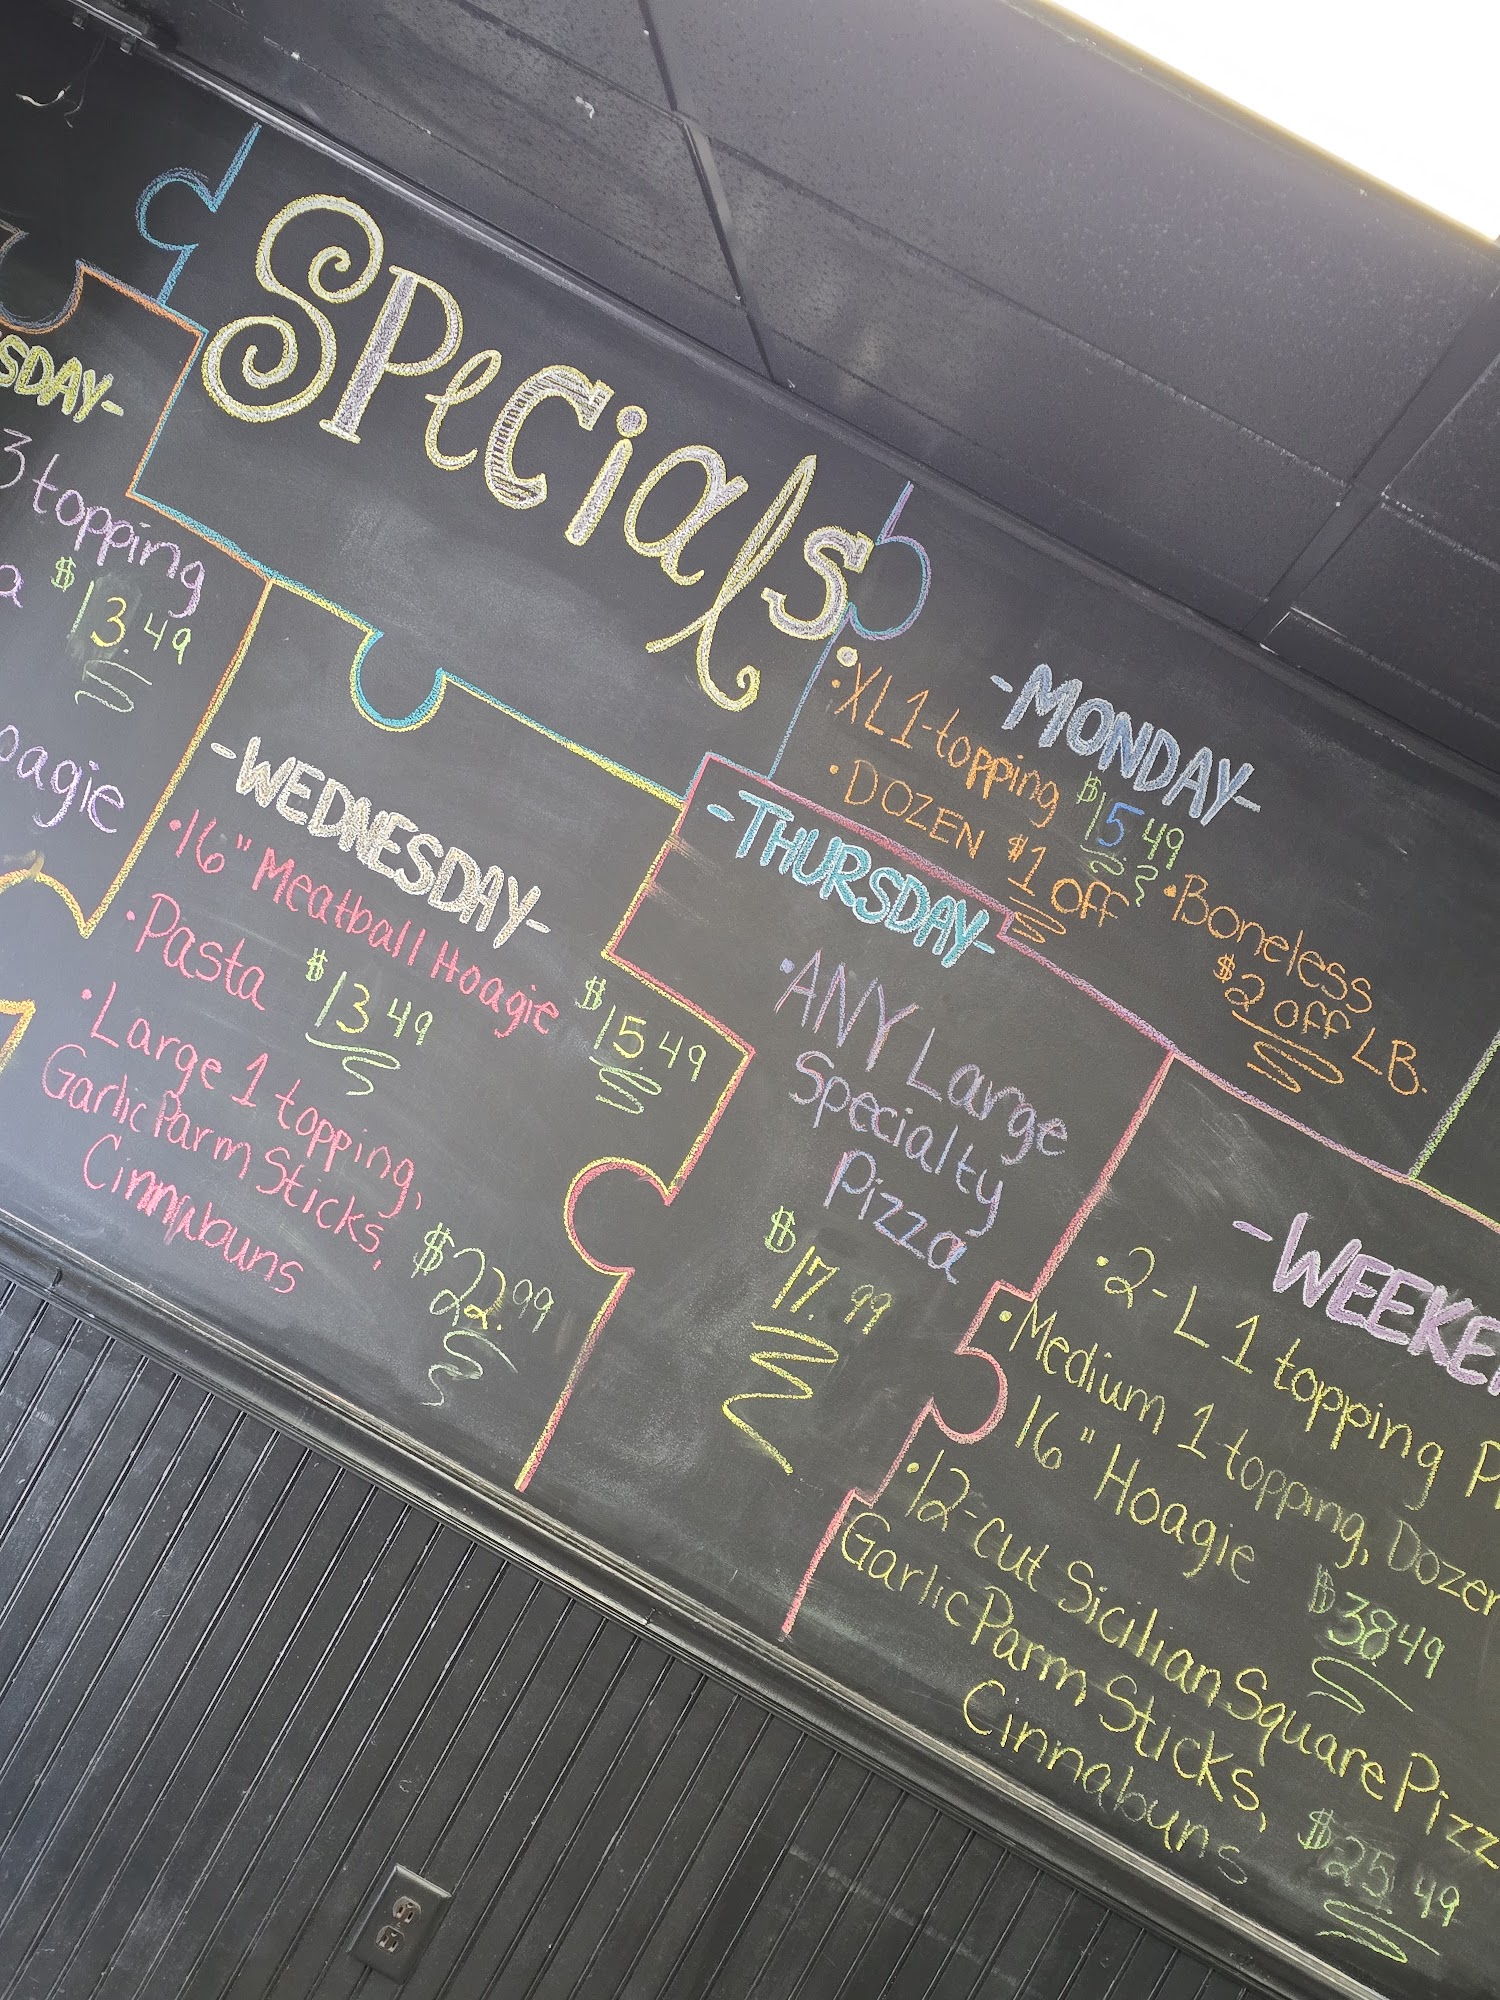 Specials
SDAY-
3 topping
a $13.49
oagie
-WEDNESDAY-
• 16" Meatball Hoagie $15.49
• Pasta $13.49
• Large 1 topping,
Garlic Parm Sticks,
Cinnabuns $22.99
-MONDAY-
• XL 1-topping $15.49
• DOZEN $1 OFF
• Boneless
$2 OFF LB.
-THURSDAY-
• ANY Large
Specialty
Pizza
$17.99
-WEEKE
• 2-L 1 topping P
• Medium 1 topping, Dozen
16" Hoagie $38.49
• 12-cut Sicilian Square Pizz
Garlic Parm Sticks,
Cinnabuns $25.49